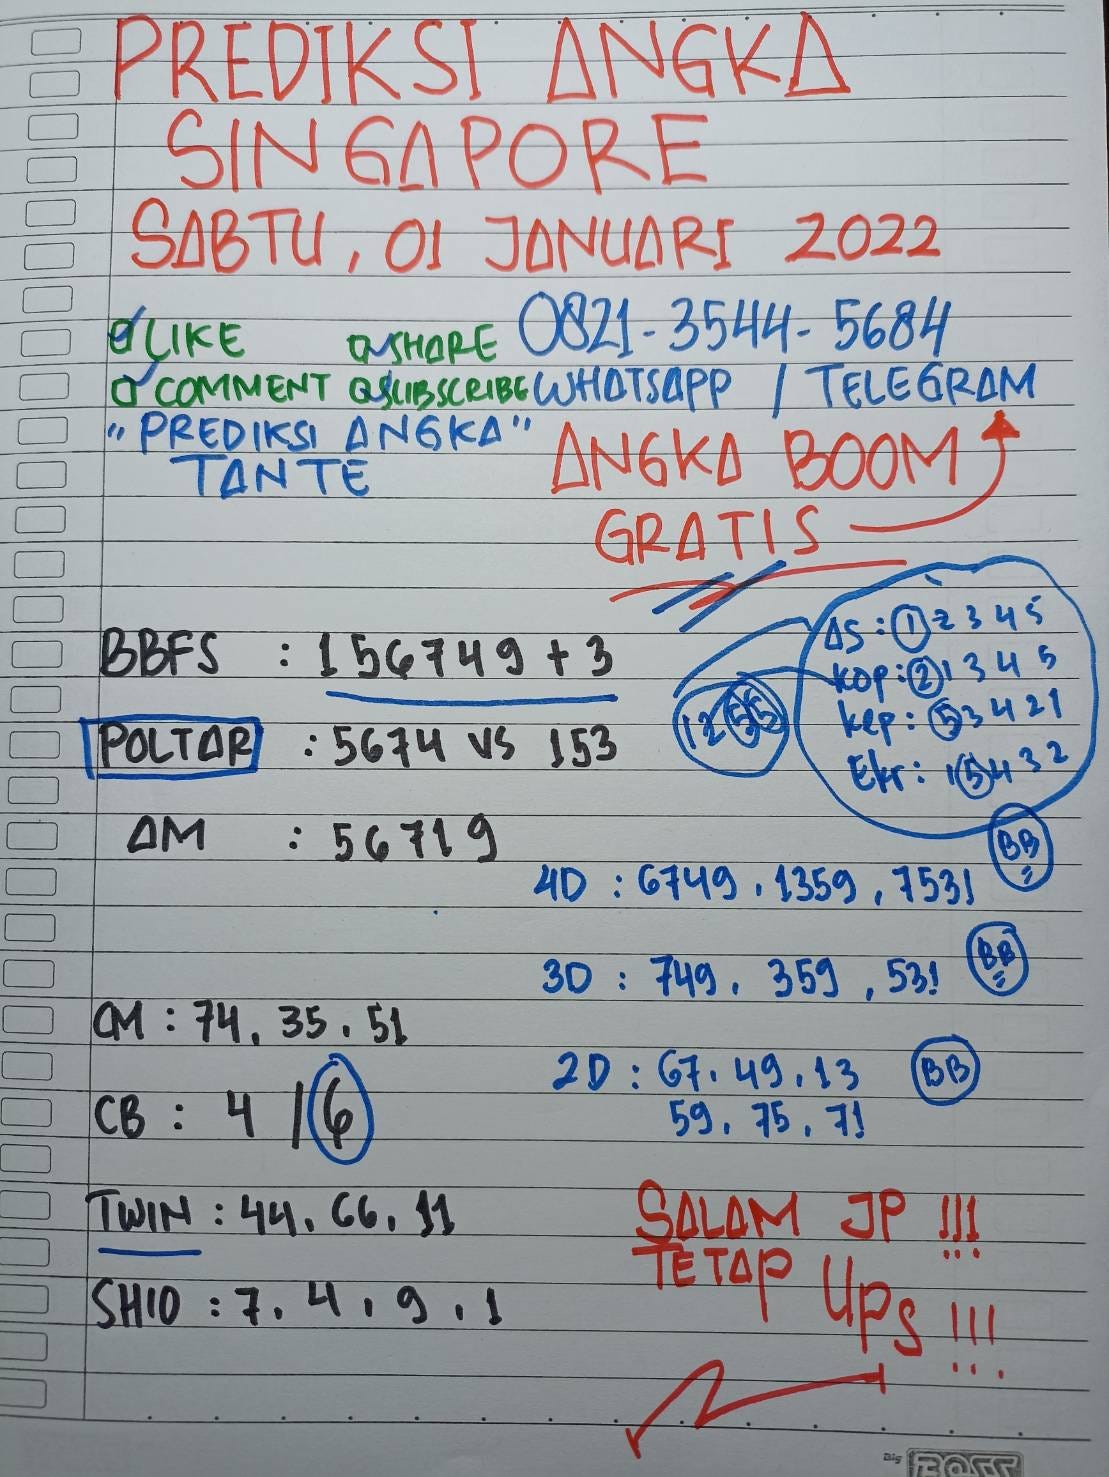 PREDIKSI ANGKA
SINGAPORE
SABTU, 01 JANUARI 2022
LIKE SHARE 0821-3544-5684
COMMENT SUBSCRIBE WHATSAPP / TELEGRAM
"PREDIKSI ANGKA"
TANTE
ANGKA BOOM
GRATIS
BBFS : 156749 + 3
POLTAR : 5674 VS 153
AM : 56719
CM : 74, 35, 51
CB : 4 / 6
TWIN : 44, 66, 11
SHIO : 7, 4, 9, 1
AS : 1 2 3 4 5
KOP : 2 1 3 4 5
Kep : 5 3 4 2 1
Ekr : 1 5 4 3 2
1255
4D : 6749, 1359, 7531 BB
3D : 749, 359, 531 BB
2D : 67, 49, 13 BB
59, 75, 71
SALAM JP !!!
TETAP UPS !!!
Big BOSS